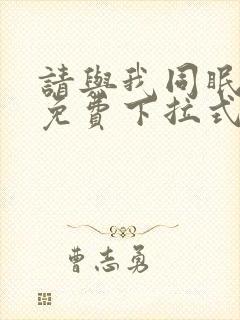 請與我同眠
免費下拉式
曹志勇